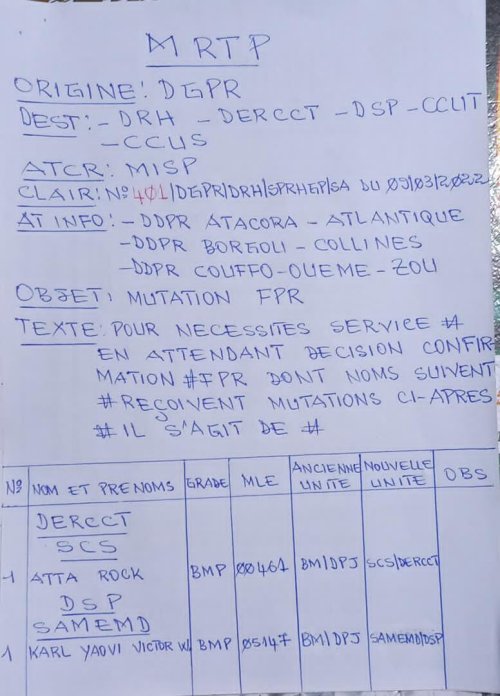 MRTP
ORIGINE: DGPR
DEST: - DRH - DERCCT - DSP - CCLIT
- CCUS
ATCR: MISP
CLAIR: Nº 401/DGPR/DRH/SPRHEP/SA DU 09/03/2022
AT INFO: - DDPR ATACORA - ATLANTIQUE
- DDPR BORGOU - COLLINES
- DDPR COUFFO - OUEME - ZOU
OBJET: MUTATION FPR
TEXTE: POUR NECESSITES SERVICE #
EN ATTENDANT DECISION CONFIR
MATION # FPR DONT NOMS SUIVENT
# REÇOIVENT MUTATIONS CI-APRES
# IL S'AGIT DE #
Nº NOM ET PRENOMS GRADE MLE ANCIENNE UNITE NOUVELLE UNITE OBS
DERCCT
SCS
1 ATTA ROCK BMP 00461 BM/DPJ SCS/DERCCT
DSP
SAMEMD
1 KARL YAOVI VICTOR W. BMP 05147 BM/DPJ SAMEMD/DSP